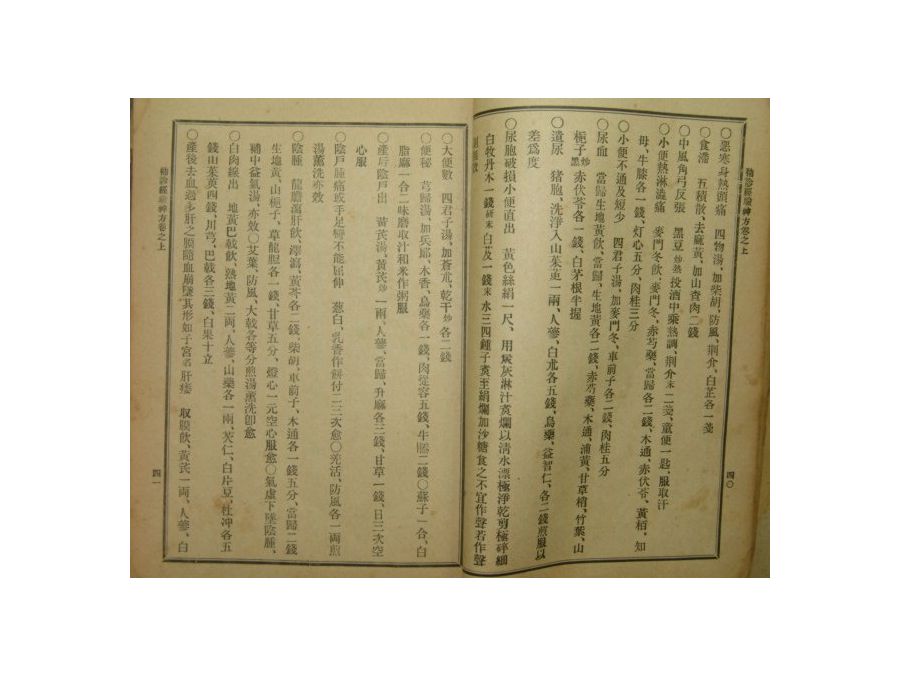 袖診經驗神方卷之上
四〇
〇惡寒身熱頭痛 四物湯,加柴胡,防風,荊介,白芷各一戔
〇食滯 五積散,去麻黃,加山查肉二錢
〇中風角弓反張 黑豆炒熟投酒中乘熱調,荊介末二戔,童便一匙,服取汗
〇小便熱淋澁痛 麥門冬飲,麥門冬,赤芍藥,當歸各二錢,木通,赤伏苓,黃栢,知
母,牛膝各一錢,灯心五分,肉桂三分
〇小便不通及短少 四君子湯,加麥門冬,車前子各二錢,肉桂五分
〇尿血 當歸生地黃飲,當歸,生地黃各二錢,赤芍藥,木通,浦黃,甘草梢,竹葉,山
梔子炒黑赤伏苓各一錢,白茅根半握
〇遺尿 猪胞,洗淨入山茱萸一兩,人蔘,白朮各五錢,烏藥,益智仁,各二錢煎服以
差爲度
〇尿胞破損小便直出 黃色絲絹一尺,用炭灰淋汁煑爛以淸水漂極淨乾剪極碎細
白牧丹木一錢研末白芨一錢末水三四鍾子煑至絹爛加沙糖食之不宜作聲若作聲
〇大便數 四君子湯,加蒼朮,乾干炒各二錢
〇便秘 芎歸湯,加兵郞,木香,烏藥各一錢,肉從容五錢,牛膝二錢〇蘇子一合,白
脂麻一合二味磨取汁和米作粥服
〇產后陰戶出 黃芪湯,黃芪炒一兩,人蔘,當歸,升麻各三錢,甘草一錢,日三次空
心服
〇陰戶腫痛或手足攣不能屈伸 葱白,乳香作餅付二三次愈〇羌活,防風各一兩煎
湯薰洗亦效
〇陰腫 龍膽瀉肝飲,澤瀉,黃芩各二錢,柴胡,車前子,木通各一錢五分,當歸二錢
生地黃,山梔子,草龍胆各一錢,甘草五分,燈心一元空心服愈〇氣虛下墜陰腫,
補中益氣湯,亦效〇艾葉,防風,大戟各等分煎湯薰洗卽愈
〇白肉線出 地黃巴戟飲,熟地黃二兩,人蔘,山藥各一兩,芡仁,白片豆,杜冲各五
錢山茱萸四錢,川芎,巴戟各三錢,白果十立
〇產後去血過多肝之膜隨血崩墜其形如子宮名肝痿 取膜飲,黃芪一兩,人蔘,白
袖診經驗神方卷之上
四一